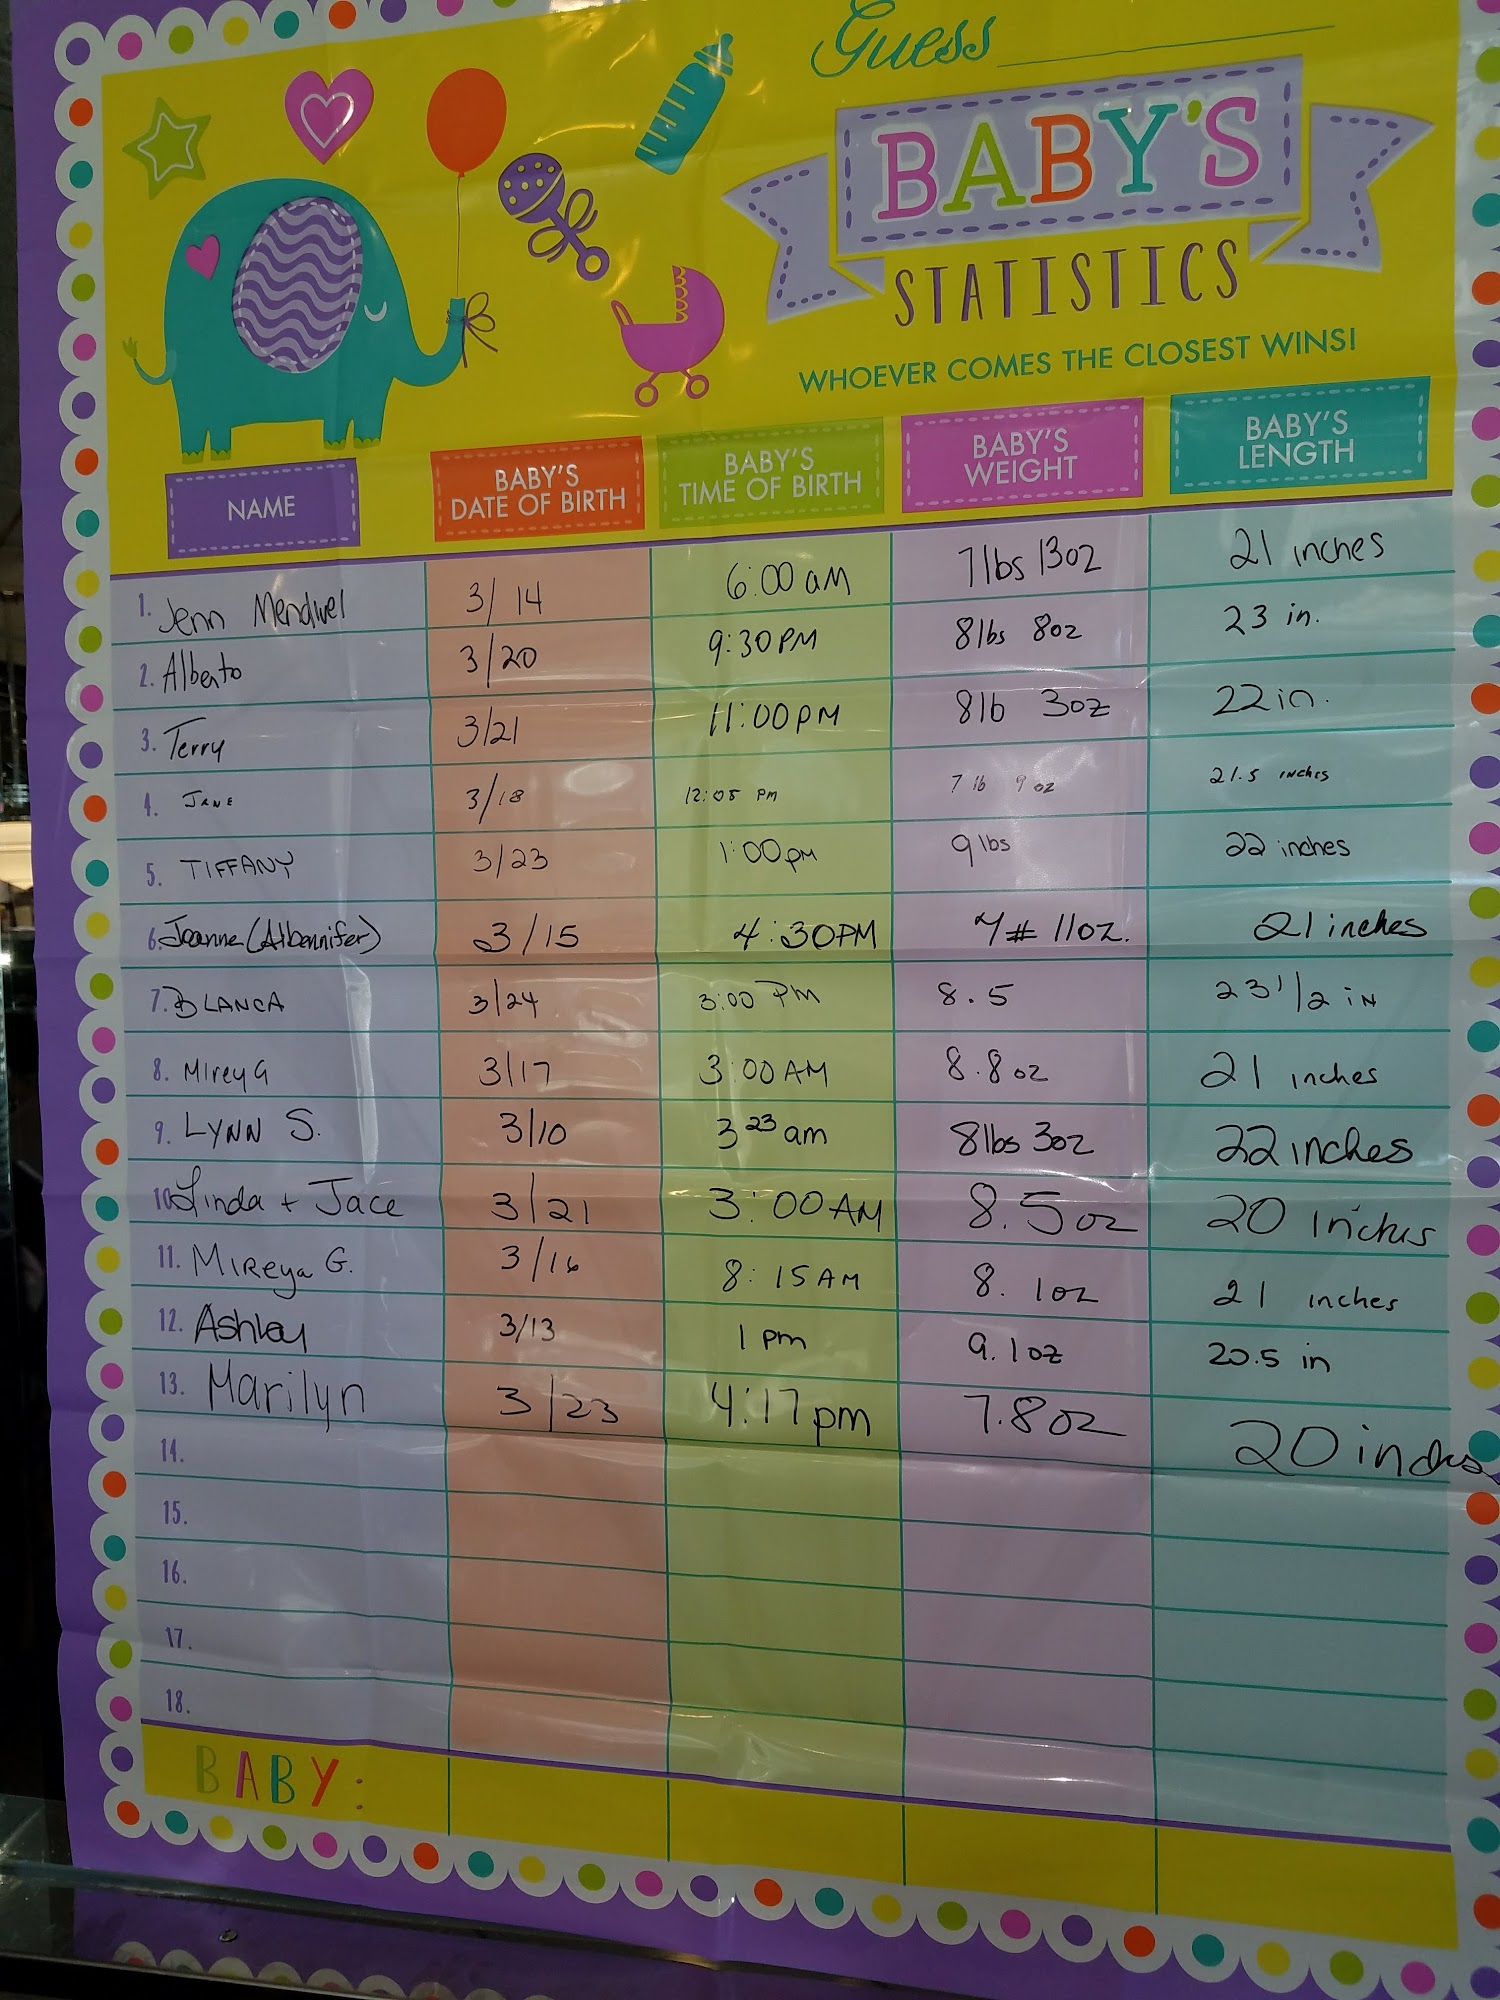 Guess
BABY'S
STATISTICS
WHOEVER COMES THE CLOSEST WINS!
NAME BABY'S DATE OF BIRTH BABY'S TIME OF BIRTH BABY'S WEIGHT BABY'S LENGTH
1. Jenn 3/14 6:00 am 7lbs 13oz 21 inches
2. Alberto 3/20 9:30PM 8lbs 8oz 23 in.
3. Terry 3/21 11:00PM 8lb 3oz 22in.
4. JANE 3/18 12:05 PM 7 lb 9 oz 21.5 inches
5. TIFFANY 3/23 1:00pm 9lbs 22 inches
6. Joanne (Albennifer) 3/15 4:30PM 7# 11oz. 21 inches
7. BLANCA 3/24 3:00 PM 8.5 23 1/2 in
8. Mirey G 3/17 3:00AM 8.8oz 21 inches
9. LYNN S. 3/10 3 23 am 8lbs 3oz 22 inches
10. Linda + Jace 3/21 3:00AM 8.5oz 20 inches
11. Mireya G. 3/16 8:15AM 8. 1oz 21 inches
12. Ashley 3/13 1 pm 9.1oz 20.5 in
13. Marilyn 3/23 4:17pm 7.8oz 20 inches
14.
15.
16.
17.
18.
BABY: